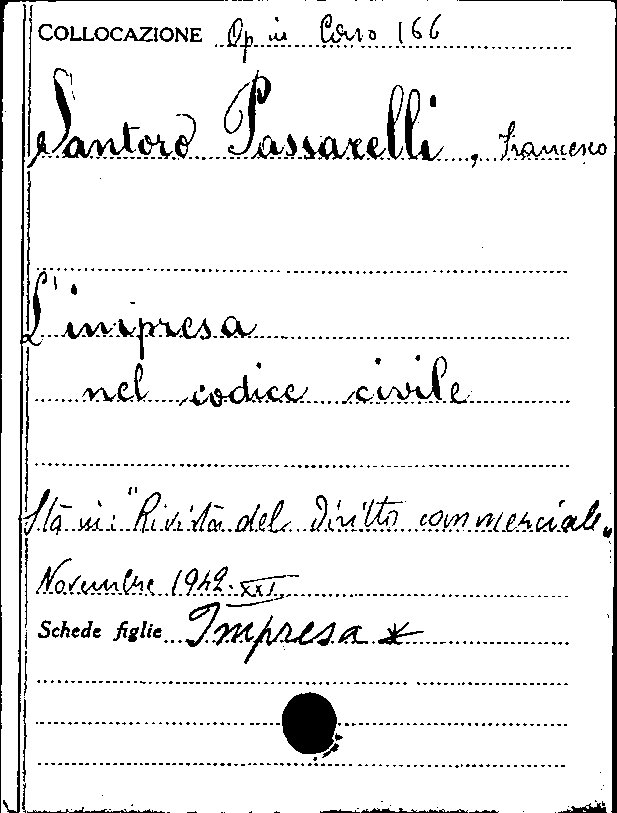 COLLOCAZIONE Op in Corso 166
Santoro Passarelli, Francesco
L'impresa
nel codice civile
Sta in: "Rivista del diritto commerciale„
Novembre 1942-XXI
Schede figlie Impresa *